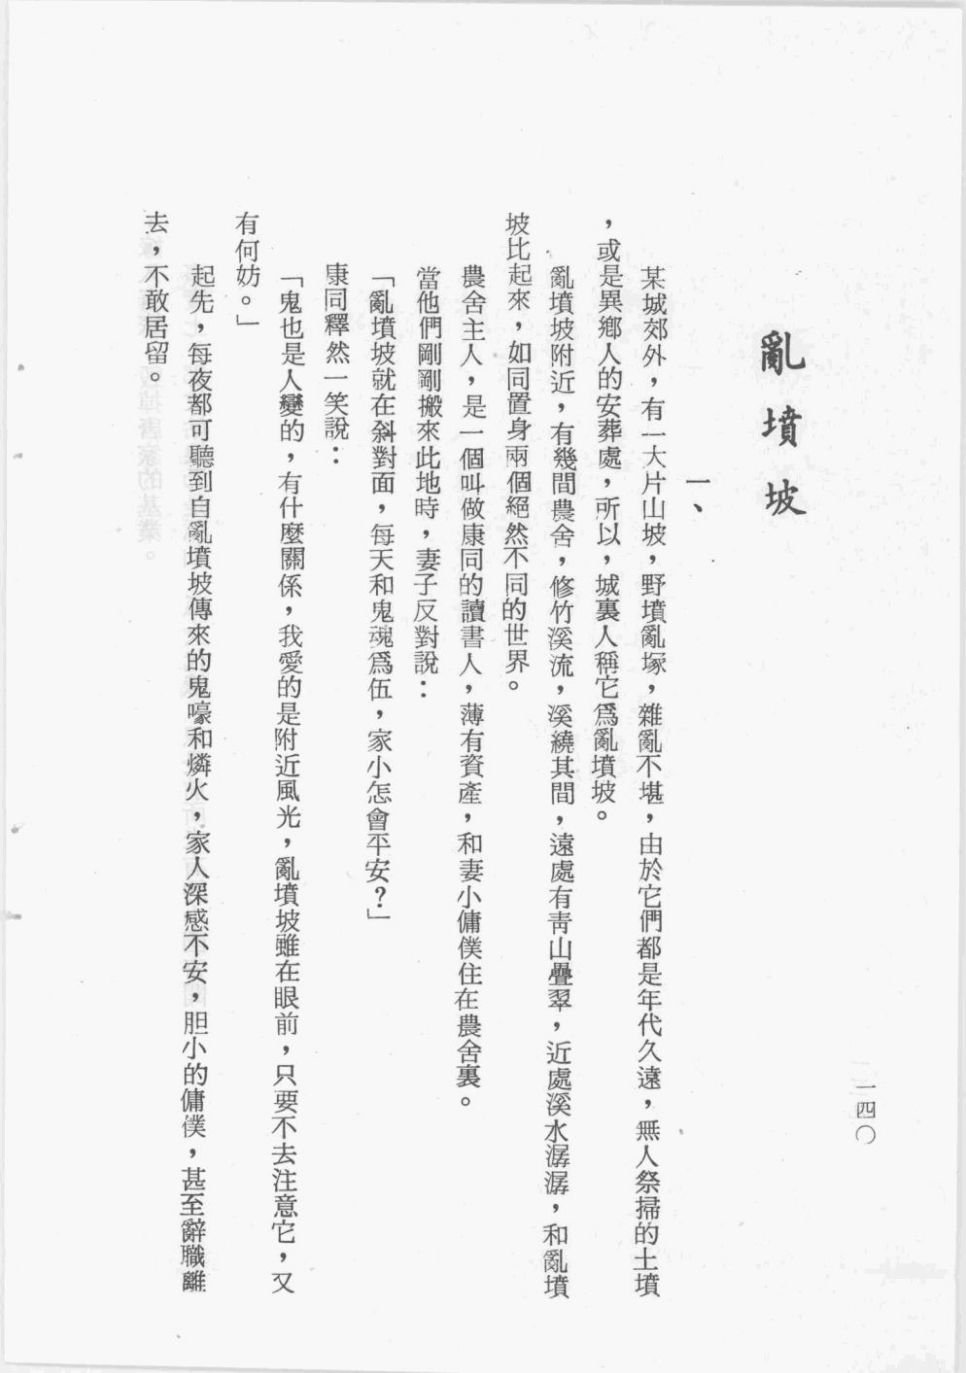 亂墳坡
一、
某城郊外，有一大片山坡，野墳亂塚，雜亂不堪，由於它們都是年代久遠，無人祭掃的土墳
，或是異鄉人的安葬處，所以，城裏人稱它爲亂墳坡。
亂墳坡附近，有幾間農舍，修竹溪流，溪繞其間，遠處有靑山疊翠，近處溪水潺潺，和亂墳
坡比起來，如同置身兩個絕然不同的世界。
農舍主人，是一個叫做康同的讀書人，薄有資產，和妻小傭僕住在農舍裏。
當他們剛剛搬來此地時，妻子反對說：
「亂墳坡就在斜對面，每天和鬼魂爲伍，家小怎會平安？」
康同釋然一笑說：
「鬼也是人變的，有什麼關係，我愛的是附近風光，亂墳坡雖在眼前，只要不去注意它，又
有何妨。」
起先，每夜都可聽到自亂墳坡傳來的鬼嚎和燐火，家人深感不安，胆小的傭僕，甚至辭職離
去，不敢居留。
一四〇